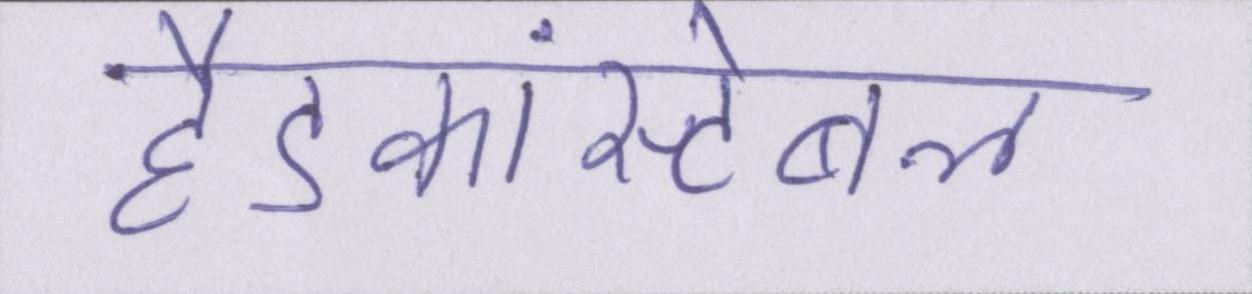 हैडकांस्टेबल